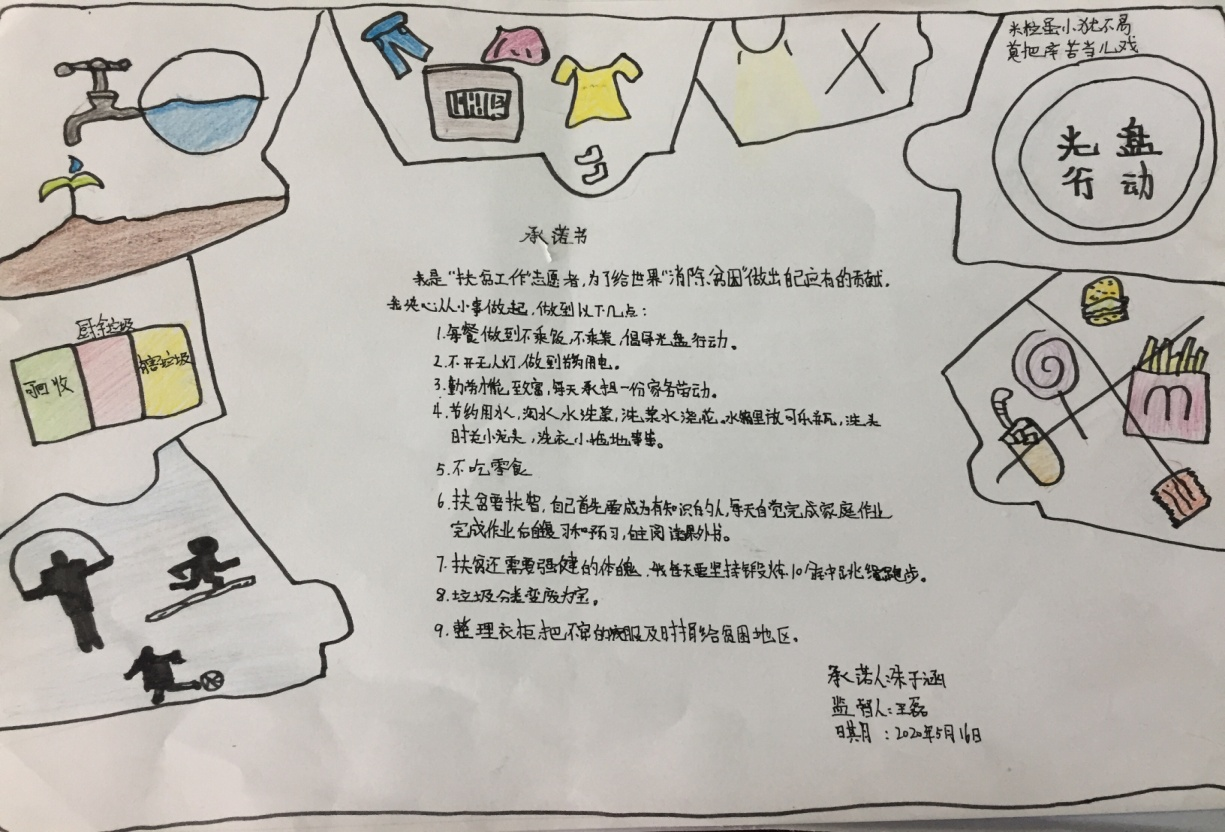 米粒虽小犹不易
莫把辛苦当儿戏
光盘
行动
厨余垃圾
可回收
有害垃圾
m
承诺书
我是“扶贫工作”志愿者,为了给世界“消除贫困”做出自己应有的贡献.
我决心从小事做起,做到以下几点:
1.每餐做到不剩饭,不剩菜,倡导光盘行动。
2.不开无人灯,做到节约用电。
3.勤劳才能致富,每天承担一份家务劳动。
4.节约用水,淘水水洗菜,洗菜水浇花。水箱里放可乐瓶,洗头
时关小龙头,洗衣小拖地
5.不吃零食
6.扶贫要扶智,自己首先要成为有知识的人,每天自觉完成家庭作业
完成作业后自觉复习和预习,自主阅读课外书。
7.扶贫还需要强健的体魄,我每天要坚持锻炼10分钟跳绳跑步。
8.垃圾分类变废为宝。
9.整理衣柜把不穿的衣服及时捐给贫困地区。
承诺人:朱于涵
监督人:王磊
日期:2020年5月16日